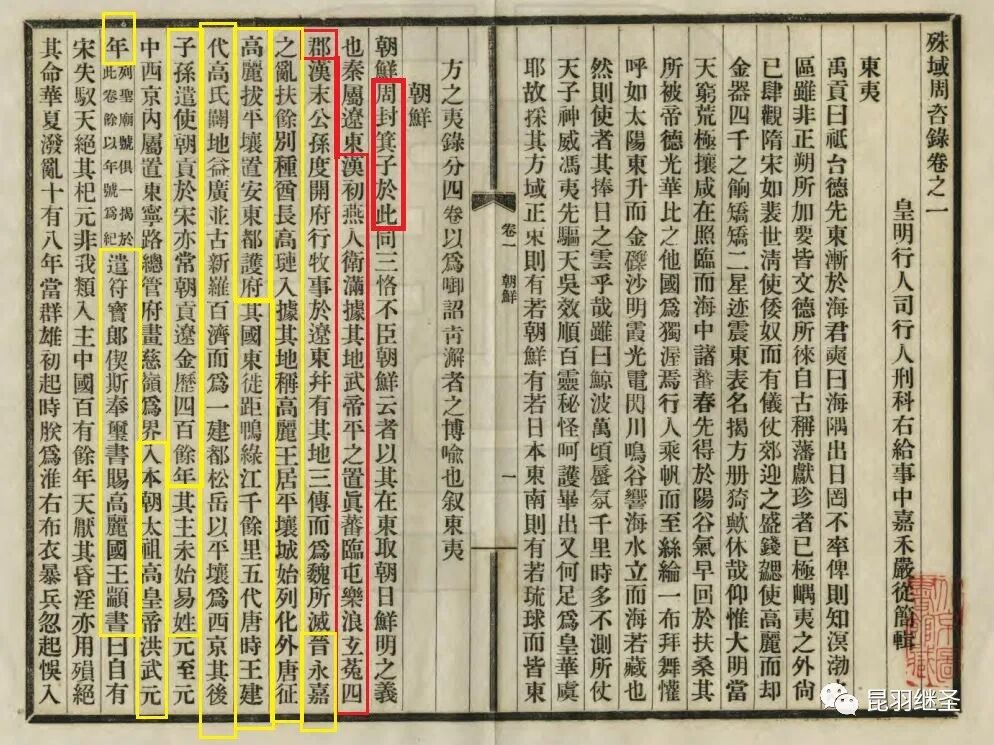 殊域周咨錄卷之一
皇明行人司行人刑科右給事中嘉禾嚴從簡輯
東夷
禹貢曰祗台德先東漸於海君奭曰海隅出日罔不率俾則知溟渤
區雖非正朔所加要皆文德所徠自古稱藩獻珍者已極嵎夷之外尙
已肆觀隋宋如裴世淸使倭奴而有儀仗郊迎之盛錢勰使高麗而却
金器四千之餉矯矯二星迹震東表名揭方册猗歟休哉仰惟大明當
天窮荒極攘咸在照臨而海中諸蕃春先得於陽谷氣早回於扶桑其
所被帝德光華比之他國爲獨渥焉行人乘帆而至絲綸一布拜舞懽
呼如太陽東升而金礫沙明霞光電閃川鳴谷響海水立而海若藏也
然則使者其捧日之雲乎哉雖曰鯨波萬頃蜃氛千里時多不測所仗
天子神威馮夷先驅天吳效順百靈秘怪呵護畢出又何足爲皇華虞
耶故採其方域正東則有若朝鮮有若日本東南則有若琉球而皆東
卷一 朝鮮 一
方之夷錄分四卷以爲啣詔靑澥者之博喩也叙東夷
朝鮮
朝鮮周封箕子於此同三恪不臣朝鮮云者以其在東取朝日鮮明之義
也秦屬遼東漢初燕人衛滿據其地武帝平之置眞蕃臨屯樂浪玄菟四
郡漢末公孫度開府行牧事於遼東幷有其地三傳而爲魏所滅晉永嘉
之亂扶餘別種酋長高璉入據其地稱高麗王居平壤城始列化外唐征
高麗拔平壤置安東都護府其國東徙距鴨綠江千餘里五代唐時王建
代高氏闢地益廣並古新羅百濟而爲一建都松岳以平壤爲西京其後
子孫遣使朝貢於宋亦常朝貢遼金歷四百餘年其主未始易姓元至元
中西京內屬置東寧路總管府畫慈嶺爲界入本朝太祖高皇帝洪武元
年列聖廟號俱一揭於此卷餘以年號爲紀遣符寶郎偰斯奉璽書賜高麗國王顓書曰自有
宋失馭天絕其祀元非我類入主中國百有餘年天厭其昏淫亦用殞絕
其命華夏潑亂十有八年當群雄初起時朕爲淮右布衣暴兵忽起悞入
昆羽继圣